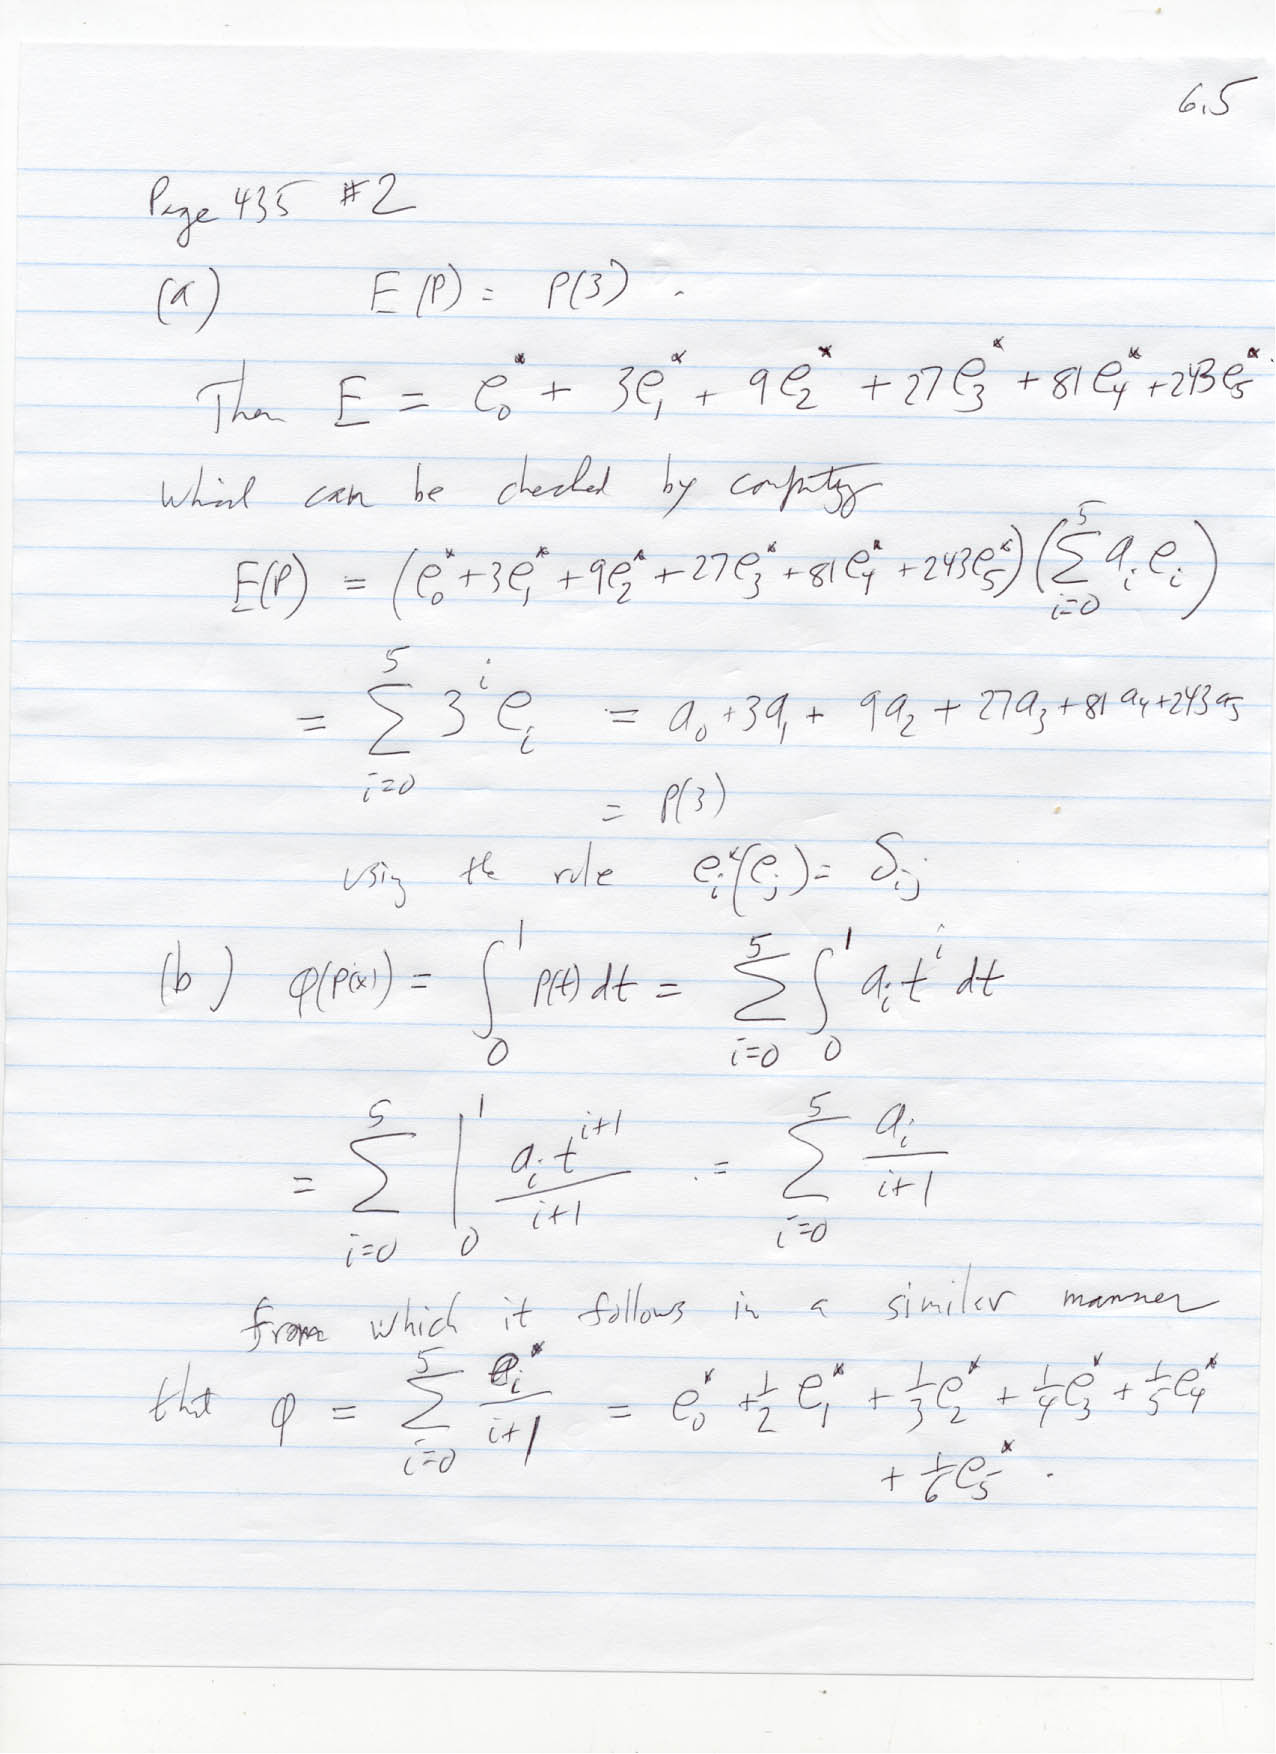 6.5
Page 435 #2
(a) E(P) = P(3).
Then E = e₀* + 3e₁* + 9e₂* + 27e₃* + 81e₄* + 243e₅*.
which can be checked by computing
E(P) = (e₀* + 3e₁* + 9e₂* + 27e₃* + 81e₄* + 243e₅*)(∑_{i=0}^{5} aᵢeᵢ)
= ∑_{i=0}^{5} 3ⁱeᵢ = a₀ + 3a₁ + 9a₂ + 27a₃ + 81a₄ + 243a₅
= P(3)
using the rule eᵢ*(eⱼ) = δᵢⱼ
(b) φ(P(x)) = ∫₀¹ P(t) dt = ∑_{i=0}^{5} ∫₀¹ aᵢtⁱ dt
= ∑_{i=0}^{5} |₀¹ aᵢt^{i+1}/(i+1) = ∑_{i=0}^{5} aᵢ/(i+1)
from which it follows in a similar manner
that φ = ∑_{i=0}^{5} eᵢ*/(i+1) = e₀* + 1/2 e₁* + 1/3 e₂* + 1/4 e₃* + 1/5 e₄*
+ 1/6 e₅*.